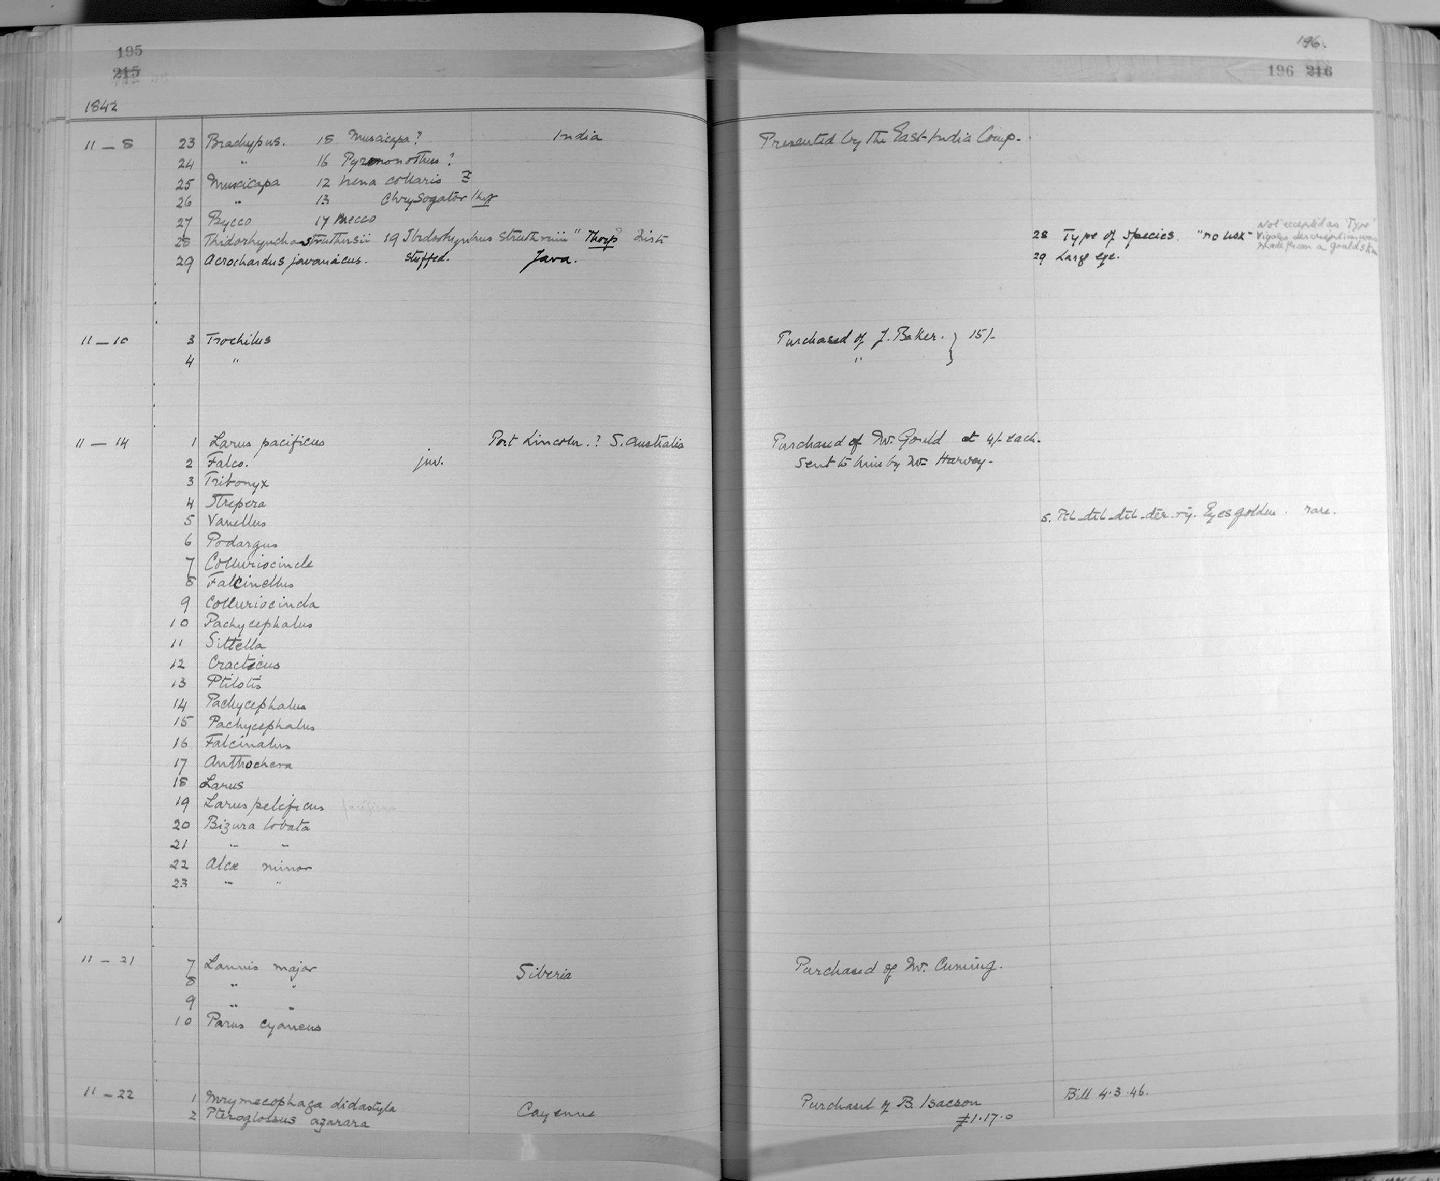 195
215
1842
196.
196 216
11 — 8 23 Brachypus. 18 Muscicapa ? India Presented by the East India Comp.
24 " 16 Pyrenonothus ?
25 Muscicapa 12 Irena collaris
26 " 13 Chrysogator
27 Bycco 17 Mecco
28 Thidorhyncha struthersii 19 Ibidorhynhus struthviii " Thorp? 28 Type of Species. "no lisk" Not accepted as 'Type'
29 Acrochardus javanicus. Stuffed. Java. 29 Large eye.
11 — 10 3 Trochilus Purchased of J. Baker. } 15/-
4 " "
11 — 14 1 Larus pacificus Port Lincoln. ? S. Australia Purchased of Mr. Gould at 4/- each.
2 Falco. juv. Sent to him by Mr. Harvey.
3 Tribonyx
4 Strepera
5 Vanellus 5. Eyes golden. rare.
6 Podargus
7 Colluriocincle
8 Falcinellus
9 Colluriocincla
10 Pachycephalus
11 Sittella
12 Cracticus
13 Ptilotis
14 Pachycephalus
15 Pachycephalus
16 Falcinalus
17 Anthochera
18 Larus
19 Larus pelificus pacificus
20 Bizura lobata
21 " "
22 Alcæ minor
23 " "
11 — 21 7 Lannis major Siberia Purchased of Mr. Cuming.
8 " "
9 " "
10 Parus cyaneus
11 — 22 1 Mrymecophaga didactyla Cayenne Purchased of B. Isacson Bill 4.3.46.
2 Pteroglossus azarara £1.17.0